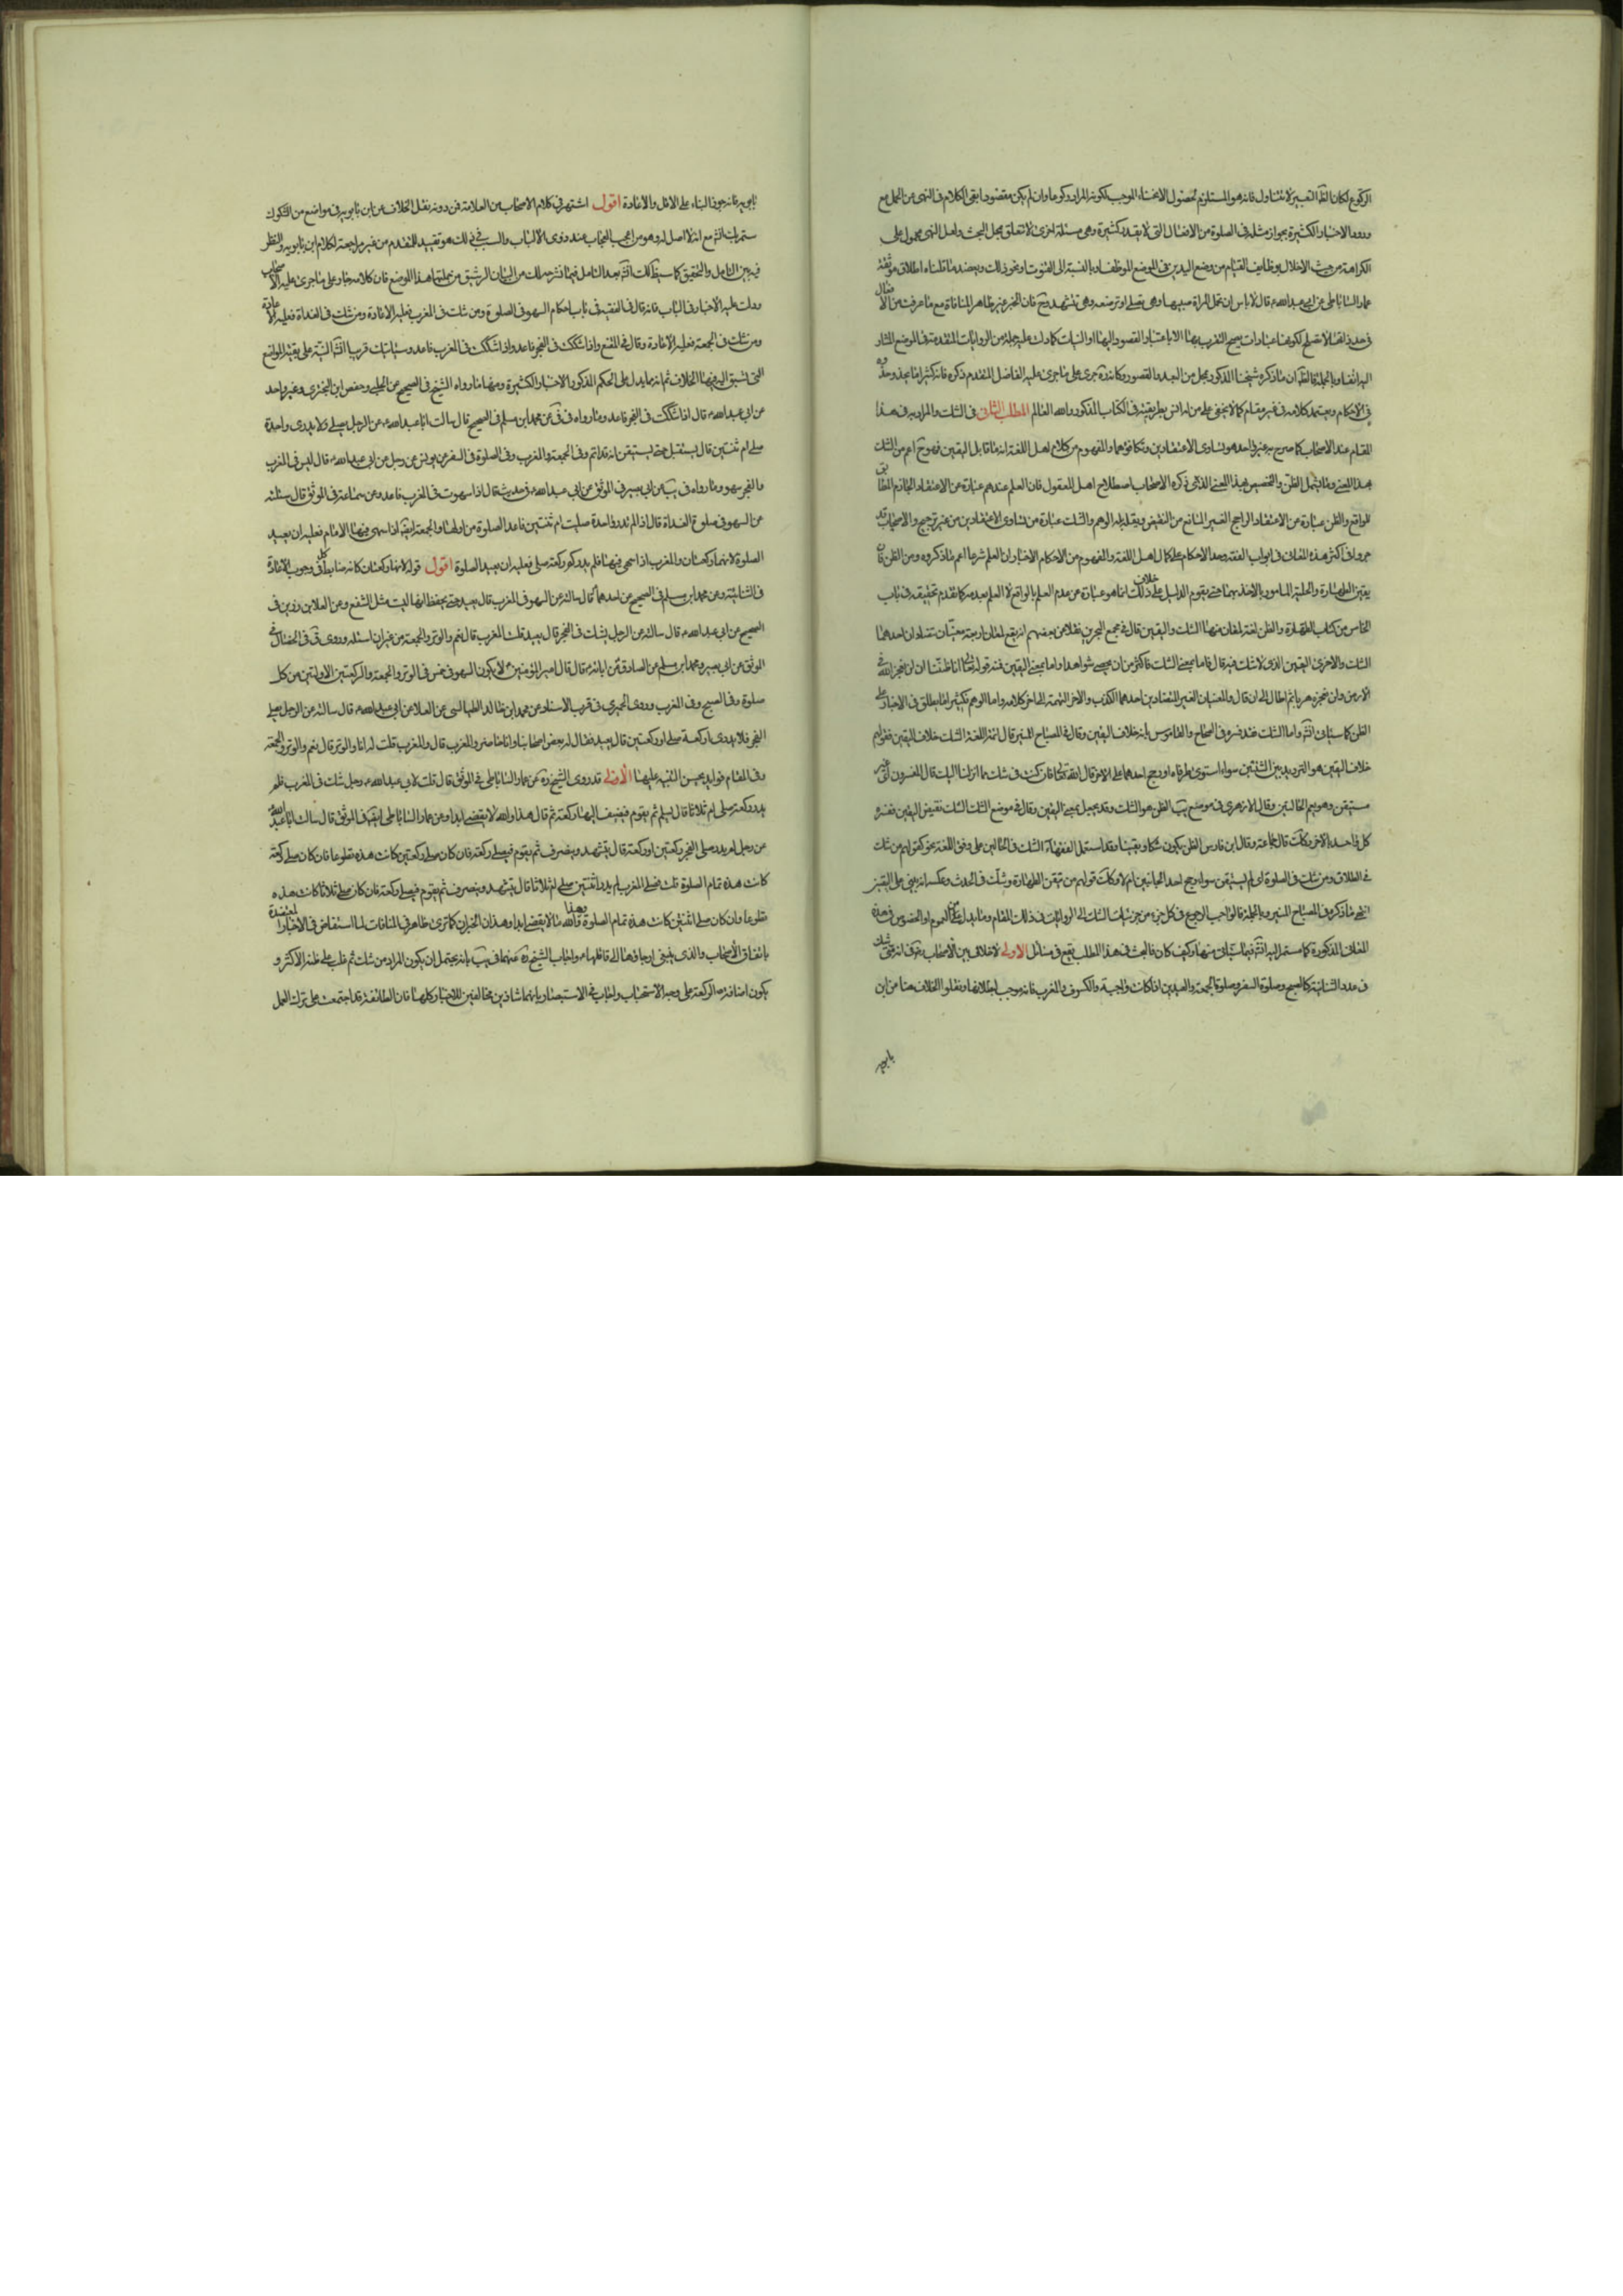 الركوع لكان لهذا التعبير لا يتناوله فانه هو المستلزم لحصول الانحناء الموجب لكونه المراد ركوعا وان لم يكن مقصودا بقى الكلام فى النهى عن الحمل مع
ورود الاخبار الكثيرة بجواز مثله فى الصلوة من الافعال التى لا يعد بكثيرة وهى مسئلة اخرى لا تتعلق بمحل البحث ولعل النهى محمول على
الكراهة من حيث الاخلال بوظايف القيام من وضع اليدين فى الموضع الموظف او بالنسبة الى القنوت او نحو ذلك ويعضد ما قلناه اطلاق موثقة
عمار الساباطى عن ابى عبد الله ع قال لا باس ان تحمل المراة صبيها وهى تصلى او ترضعه وهى تتشهد وح فان الخبر غير ظاهر المنافاة مع ما عرفت من الا فعال
فى حد ذاتها لا تصلح لكونها عبادات يصح التقرب بها الا باعتبار القصود اليها او النيات كما دلت عليه جملة من الروايات المتقدمة فى الموضع المشار
اليه انفا وبالجملة فالظ ان ما ذكره شيخنا المذكور بمحل من البعد والقصور وكانه ره جرى على ما جرى عليه الفاضل المتقدم ذكره فانه كثيرا ما يحذو حذوه
فى الاحكام ويعتمد كلامه فى غير مقام كما لا يخفى على من له انس بطريقته فى الكتاب المذكور والله العالم المطلب الثانى فى الشك والمراد به فى هذا
المقام عند الاصحاب كما صرح به غير واحد هو تساوى الاعتقادين وتكافؤهما والمفهوم من كلام اهل اللغة انه ما قابل اليقين فهو ح اعم من الشك
بهذا المعنى وما يشمل الظن والتخصيص بهذا المعنى الذى ذكره الاصحاب اصطلاح اهل المعقول فان العلم عندهم عبارة عن الاعتقاد الجازم المطابق
للواقع والظن عبارة عن الاعتقاد الراجح الغير المانع من النقيض ويقابله الوهم والشك عبارة عن تساوى الاعتقادين من غير ترجيح والاصحاب قد
جروا فى اكثر هذه المعانى فى ابواب الفقه وعدا الاحكام على كلام اهل اللغة والمفهوم من الاحكام الاخبار ان العلم شرعا اعم مما ذكروه ومن الظن فان
يقين الطهارة والحلية المامور بالاخذ بهما حتى يقوم الدليل على خلاف ذلك انما هو عبارة عن عدم العلم بالواقع لا العلم بعدمه كما تقدم تحقيقه فى باب
الخامس من كتاب الطهارة والظن لغة لمعان منها الشك واليقين قال فى مجمع البحرين نقلا عن بعضهم انه يقع لمعان اربعة معنيان متضادان احدهما
الشك والاخرى اليقين الذى لا شك فيه قال فاما بمعنى الشك فاكثر من ان يحصى شواهده واما بمعنى اليقين فمنه قوله تعالى انا ظننا ان لن نعجز الله فى
الارض ولن نعجزه هربا ثم اطال الى ان قال والمعنيان الغير المتضادين احدهما الكذب والاخر التهمة الى اخر كلامه واما الوهم فكثيرا ما يطلق فى الاخبار على
الظن كما سياتى انش واما الشك فقد فسره فى الصحاح والقاموس بانه خلاف اليقين وقال فى المصباح المنير قال ائمة اللغة الشك خلاف اليقين فقولهم
خلاف اليقين هو التردد بين الشيئين سواء استوى طرفاه او رجح احدهما على الاخر قال الله تعالى فان كنت فى شك مما انزلنا اليك قال المفسرون اى غير
مستيقن وهو يعم الحالتين وقال الازهرى فى موضع يب الظن هو الشك وقد يجعل بمعنى اليقين وقال فى موضع الشك الشك نقيض اليقين ففسر
كل واحد بالاخر وكك قال جماعة وقال ابن فارس الظن يكون شكا ويقينا وقد استعمل الفقهاء الشك فى الحالين على وفق اللغة نحو قولهم من شك
فى الطلاق ومن شك فى الصلوة اى لم يستيقن سواء رجح احد الجانبين ام لا وكك قولهم من تيقن الطهارة وشك فى الحدث وعكسه انه يبنى على اليقين
انتهى ما ذكره فى المصباح المنير وبالجملة فالواجب الرجوع فى كل جزء من جزئيات الشك الى الروايات فى ذلك المقام وما يدل عليه من العموم او الخصوص فى هذه
المعانى المذكورة كما ستمر اليه انش فيما سياتى منها وكيف كان فالبحث فى هذا المطلب يقع فى مسائل الاولى لا خلاف بين الاصحاب رض فى انه متى شك
فى عدد الثنائية كالصبح وصلوة السفر وصلوة الجمعة والعيدين اذا كانت واجبة والكسوف والمغرب فانه موجب لبطلانها ونقلوا الخلاف هنا من ابن
بابويه
بابويه فانه جوز البناء على الاقل والاعادة اقول اشتهر فى كلام الاصحاب من العلامة فمن دونه نقل الخلاف عن ابن بابويه فى مواضع من الشكوك
ستمر بك انش مع انه لا اصل له وهو من اعجب العجاب عند ذوى الالباب والسبب فى ذلك هو تقليد المتقدم من غير مراجعة لكلام ابن بابويه والنظر
فيه بعين التامل والتحقيق كما سيظهر لك انش بعد التامل فيما نشرحه لك من البيان الرشيق من جملتها هذا الموضع فان كلامه جار على ما جرى عليه الاصحاب
ودلت عليه الاخبار فى الباب فانه قال فى الفقيه فى باب احكام السهو فى الصلوة ومن شك فى المغرب فعليه الاعادة ومن شك فى الغداة فعليه الاعادة
ومن شك فى الجمعة فعليه الاعادة وقال فى المقنع واذا شككت فى الفجر فاعد واذا شككت فى المغرب فاعد وسياتيك قريبا انش التنبيه على بقية المواضع
التى نسبق اليه فيها الخلاف ثم انه مما يدل على الحكم المذكور الاخبار الكثيرة ومنها ما رواه الشيخ فى الصحيح عن الحلبى وحفص ابن البخترى وغير واحد
عن ابى عبد الله ع قال اذا شككت فى الفجر فاعد وما رواه فى فى عن محمد ابن مسلم فى الصحيح قال سالت ابا عبد الله ع عن الرجل يصلى ولا يدرى واحدة
صلى ام ثنتين قال يستقبل حتى يستيقن انه قد اتم وفى الجمعة والمغرب وفى الصلوة فى السفر عن يونس عن رجل عن ابى عبد الله ع قال ليس فى المغرب
والفجر سهو وما رواه فى يب عن ابى بصير فى الموثق عن ابى عبد الله ع فى حديث قال اذا سهوت فى المغرب فاعد وعن سماعة فى الموثق قال سئلته
عن السهو فى صلوة الغداة قال اذا لم تدر واحدة صليت ام ثنتين فاعد الصلوة من اولها والجمعة ايضا اذا سهى فيها الامام فعليه ان يعيد
الصلوة لانها ركعتان والمغرب اذا سهى فيها فلم يدر كم ركعة صلى فعليه ان يعيد الصلوة اقول قوله لانها ركعتان كانه ضابط كلى فى وجوب الاعادة
فى الثنائية وعن محمد ابن مسلم فى الصحيح عن احدهما ع قال سالته عن السهو فى المغرب قال يعيد حتى يحفظ انها ليست مثل الشفع وعن العلا بن رزين فى
الصحيح عن ابى عبد الله ع قال سالته عن الرجل يشك فى الفجر قال يعيد قلت المغرب قال نعم والوتر والجمعة من غير ان اسئله وروى ق فى الخصال فى
الموثق عن ابى بصير ومحمد ابن مسلم عن الصادق عن ابائه ع قال قال امير المؤمنين ع لا يكون السهو فى خمس فى الوتر والجمعة والركعتين الاولتين من كل
صلوة وفى الصبح وفى المغرب وروى الحميرى فى قرب الاسناد عن محمد ابن خالد الطيالسى عن العلا عن ابى عبد الله ع قال سالته عن الرجل يصلى
الفجر فلا يدرى اركعة صلى او ركعتين قال يعيد فقال له بعض اصحابنا وانا حاضر والمغرب قال والمغرب قلت له انا والوتر قال نعم والوتر والجمعة
وفى المقام فوايد يحسن التنبيه عليها الاولى قد روى الشيخ ره عن عمار الساباطى فى الموثق قال قلت لابى عبد الله ع رجل شك فى المغرب فلم
يدر ركعة صلى ام ثلاثا قال يسلم ثم يقوم فيضيف اليها ركعة ثم قال هذا والله لا يقضى ابدا وعن عمار الساباطى ايضا فى الموثق قال سالت ابا عبد الله ع
عن رجل لم يدر صلى الفجر ركعتين او ركعة قال يتشهد وينصرف ثم يقوم فيصلى ركعة فان كان صلى ركعتين كانت هذه تطوعا فان كان صلى ركعة
كانت هذه تمام الصلوة قلت فصلى المغرب لم يدر اثنتين صلى ام ثلاثا قال يتشهد وينصرف ثم يقوم فيصلى ركعة فان كان صلى ثلاثا كانت هذه
تطوعا وان كان صلى اثنتين كانت هذه تمام الصلوة وهذا والله مما لا يقضى ابدا وهذان الخبران كما ترى ظاهر فى المنافات لما استفاض فى الاخبار المعتضدة
باتفاق الاصحاب والذى ينبغى ارجاؤهما الى قائلهما ع واجاب الشيخ ره عنهما فى يب بانه يحتمل ان يكون المراد من شك ثم غلب على ظنه الاكثر و
يكون اضافة الركعة على وجه الاستحباب واجاب فى الاستبصار بانهما شاذين مخالفين للاخبار كلها فان الطائفة قد اجتمعت على ترك العمل